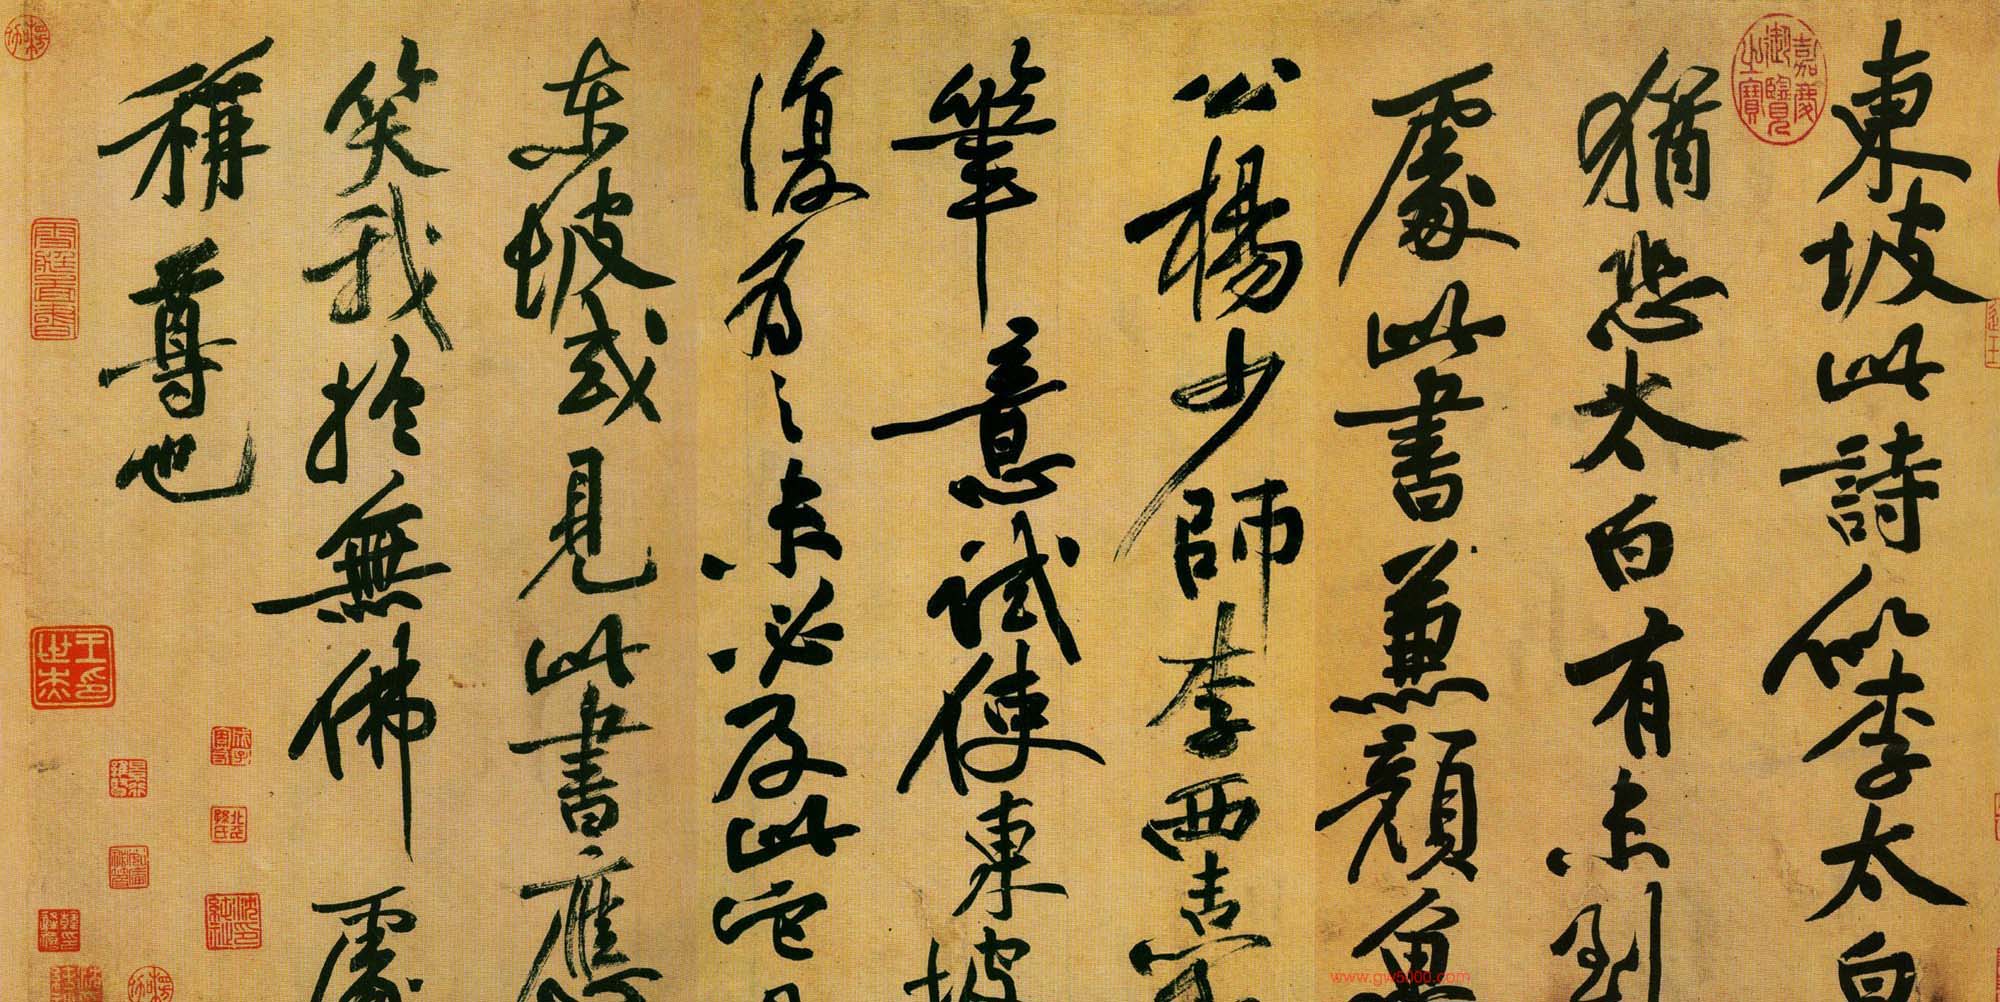 東坡此詩似李太白
猶恐太白有未到
處此書兼顔魯
公楊少師李西臺
筆意試使東坡
復為之未必及此它日
東坡或見此書應
笑我於無佛處
稱尊也
嘉慶御覽之寶
王世杰印
www.gw5000.com